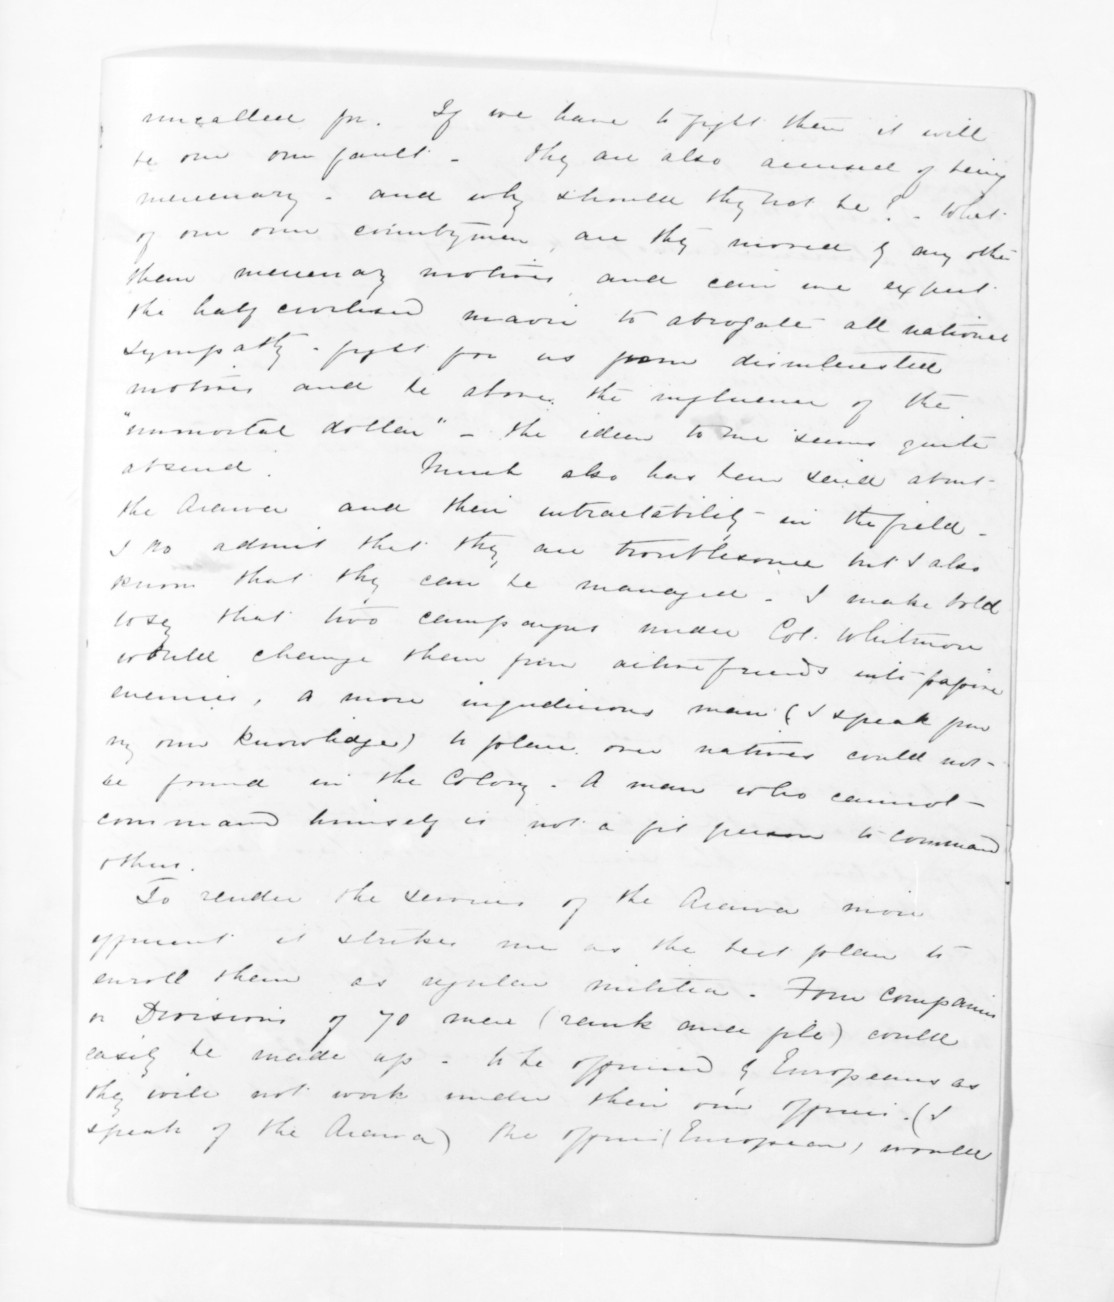 uncalled for. If we have to fight them it will
be our own fault - They are also accused of being
mercenary - and why should they not be? - What
of our own countrymen, are they moved by any other
than mercenary motives and can we expect
the half civilised maori to abrogate all national
sympathy - fight for us from disinterested
motives and be above the influence of the
"immortal dollar" - the idea to me seems quite
absurd. Much also has been said about
the Arawa and their intractability in the field -
I do admit that they are troublesome but I also
know that they can be managed. I make bold
to say that two campaigns under Col. Whitmore
would change them from active friends into passive
enemies, a more injudicious man (I speak from
my own knowledge) to place over natives could not
be found in the Colony. A man who cannot
command himself is not a fit person to command
others.
To render the services of the Arawa more
efficient it strikes me as the best plan to
enroll them as regular militia. Four Companies
or Divisions of 70 men (rank and file) could
easily be made up - to be officered by Europeans as
they will not work under their own officers. (I
speak of the Arawa) the officers (European) would